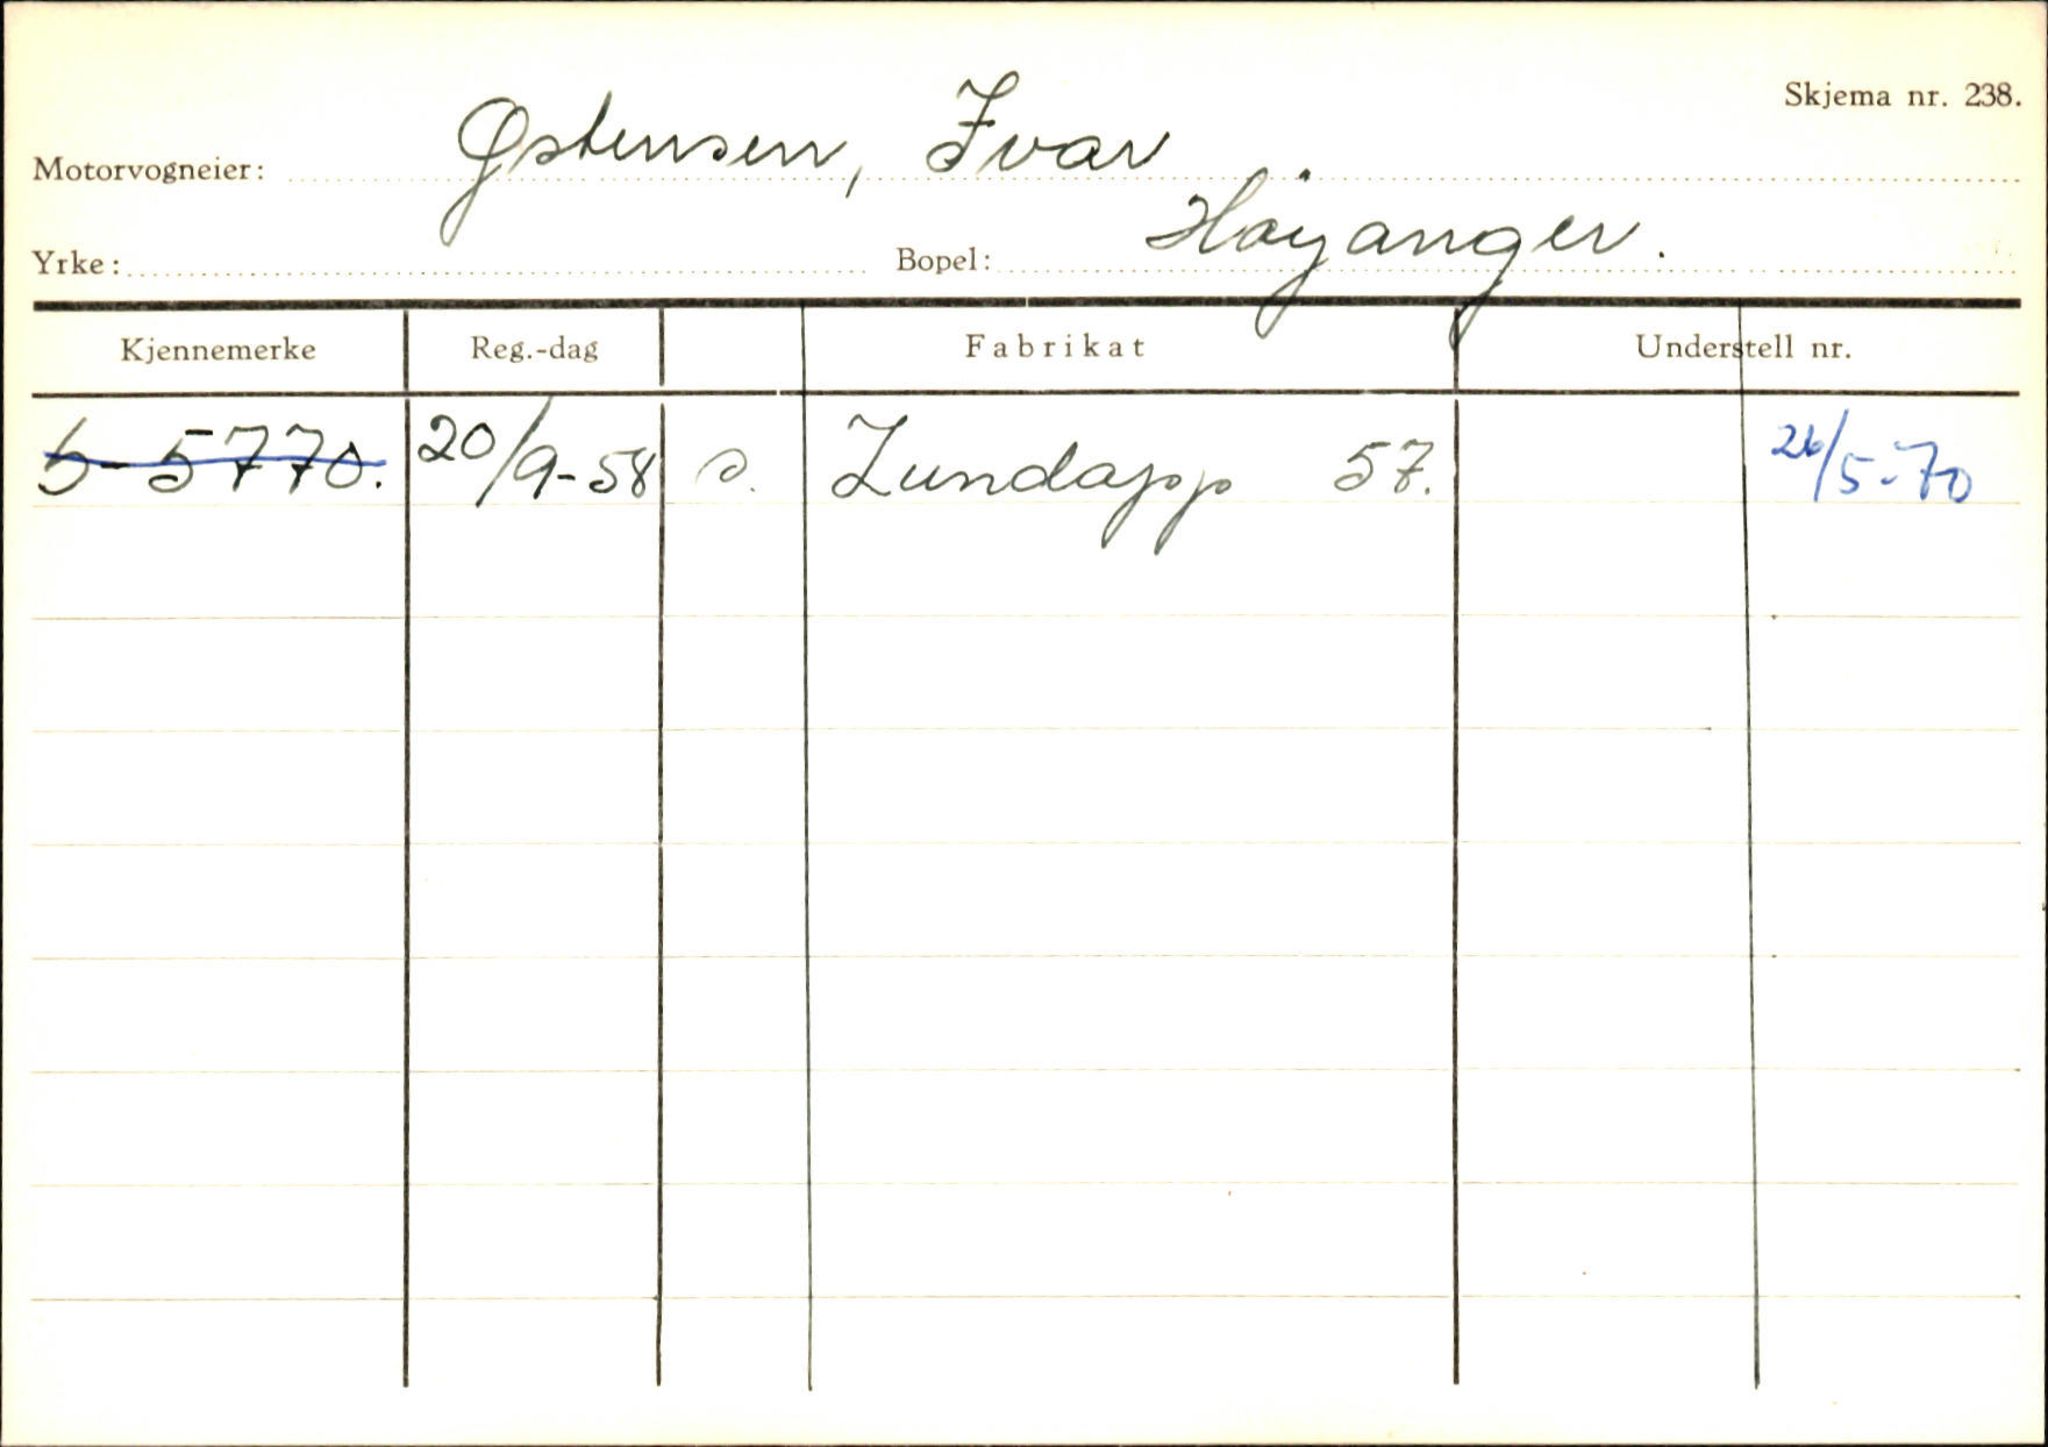 Skjema nr. 238.
Motorvogneier: Østensen, Ivar
Yrke: Bopel: Høyanger.
Kjennemerke Reg.-dag Fabrikat Understell nr.
S-5770. 20/9-58 s. Zundapp 57. 26/5-70